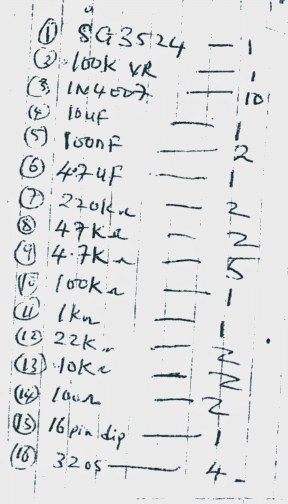 ① SG3524 — 1
② 100K VR — 1
③ 1N4007 — 10
④ 10uf — 1
⑤ 100nF — 2
⑥ 4.7uF — 1
⑦ 270KΩ — 2
⑧ 47KΩ — 2
⑨ 4.7KΩ — 5
⑩ 100KΩ — 1
⑪ 1KΩ — 1
⑫ 22KΩ — 2
⑬ 10KΩ — 2
⑭ 100Ω — 2
⑮ 16 pin dip — 1
⑯ 3205 — 4